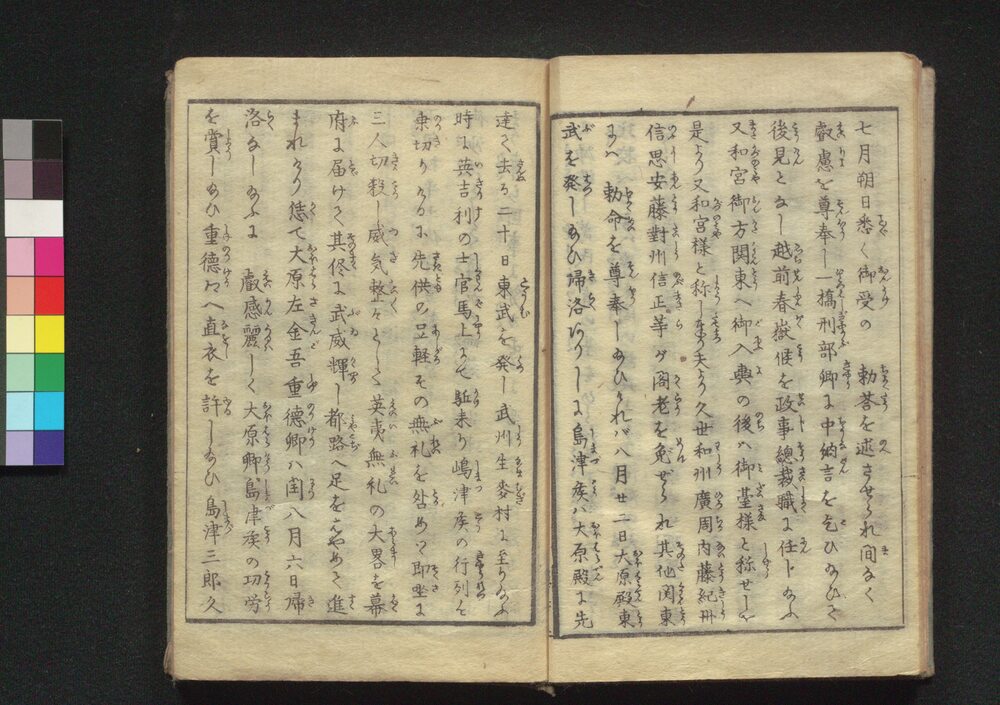 七月朔日悉く御受の　勅答を述させられ間なく
叡慮を尊奉し一橋刑部卿に中納言を乞ひ給ひて
後見となし越前春嶽候を政事總裁職に任じ給ふ
又和宮御方関東へ御入輿の後ハ御臺様と称せしが
是より又和宮様と称し夫より久世和州廣周内藤紀州
信思安藤對州信正等が閣老を免ぜられ其他関東
にハ　勅命を尊奉し給ひければ八月廿二日大原殿東
武を発し給ひ帰洛ありしに島津侯ハ大原殿に先
達て去る二十日東武を発し武州生麥村に至り給ふ
時に英吉利の士官馬上にて駈来り嶋津侯の行列を
乗切りけるに先供の足軽その無礼を咎めて即坐に
三人切殺し威気整々として英夷無礼の大畧を幕
府に届けて其侭に武威輝し都路へ足をはやめて進
まれけり偖て大原左金吾重徳卿ハ閏八月六日帰
洛なし給ふに　叡感麗しく大原卿島津侯の功労
を賞し給ひ重徳卿へ直衣を許し給ひ島津三郎久